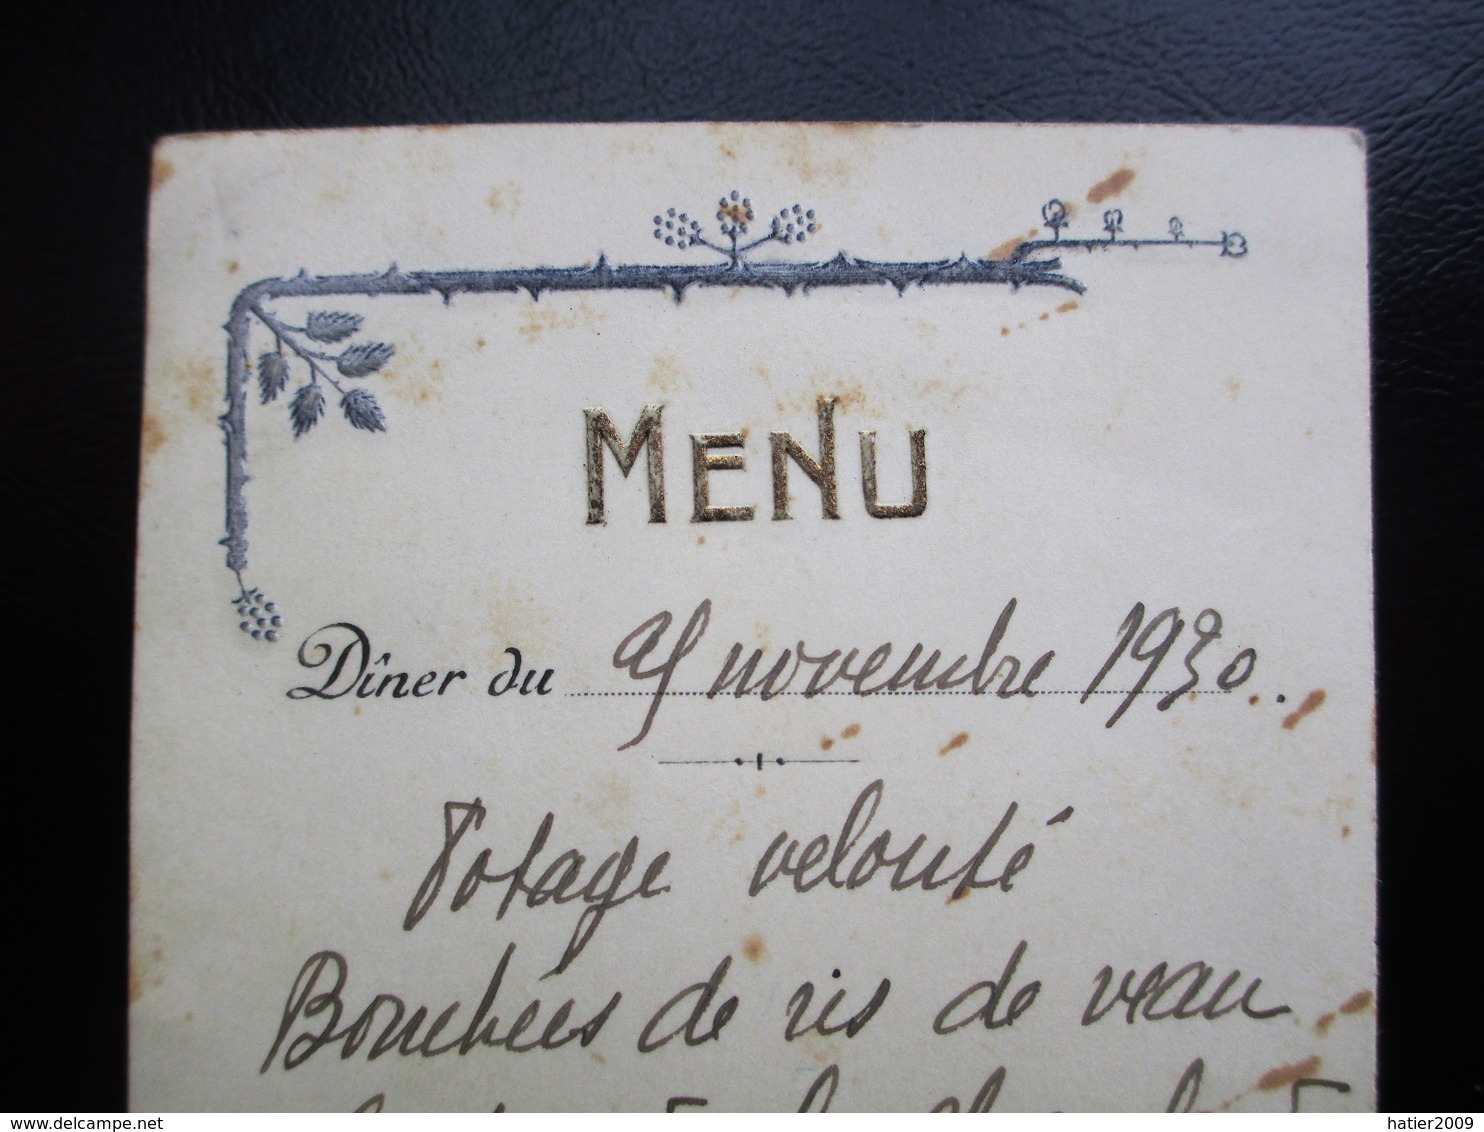 MENU
Dîner du 25 novembre 1930.
Potage velouté
Bouchées de ris de veau
hatier2009